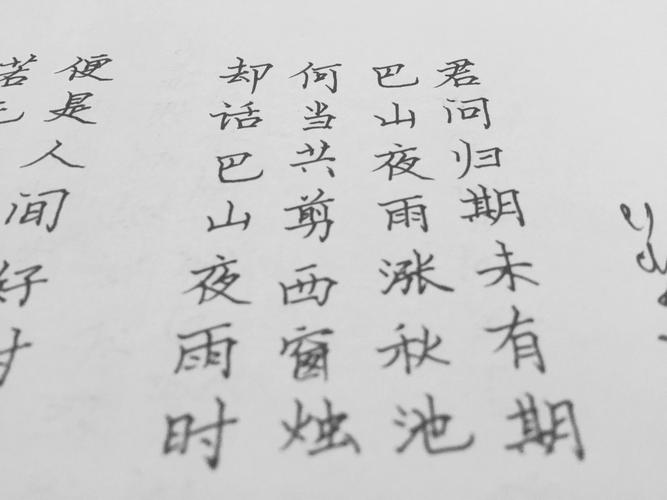 君问归期未有期
巴山夜雨涨秋池
何当共剪西窗烛
却话巴山夜雨时
便是人间好时
若